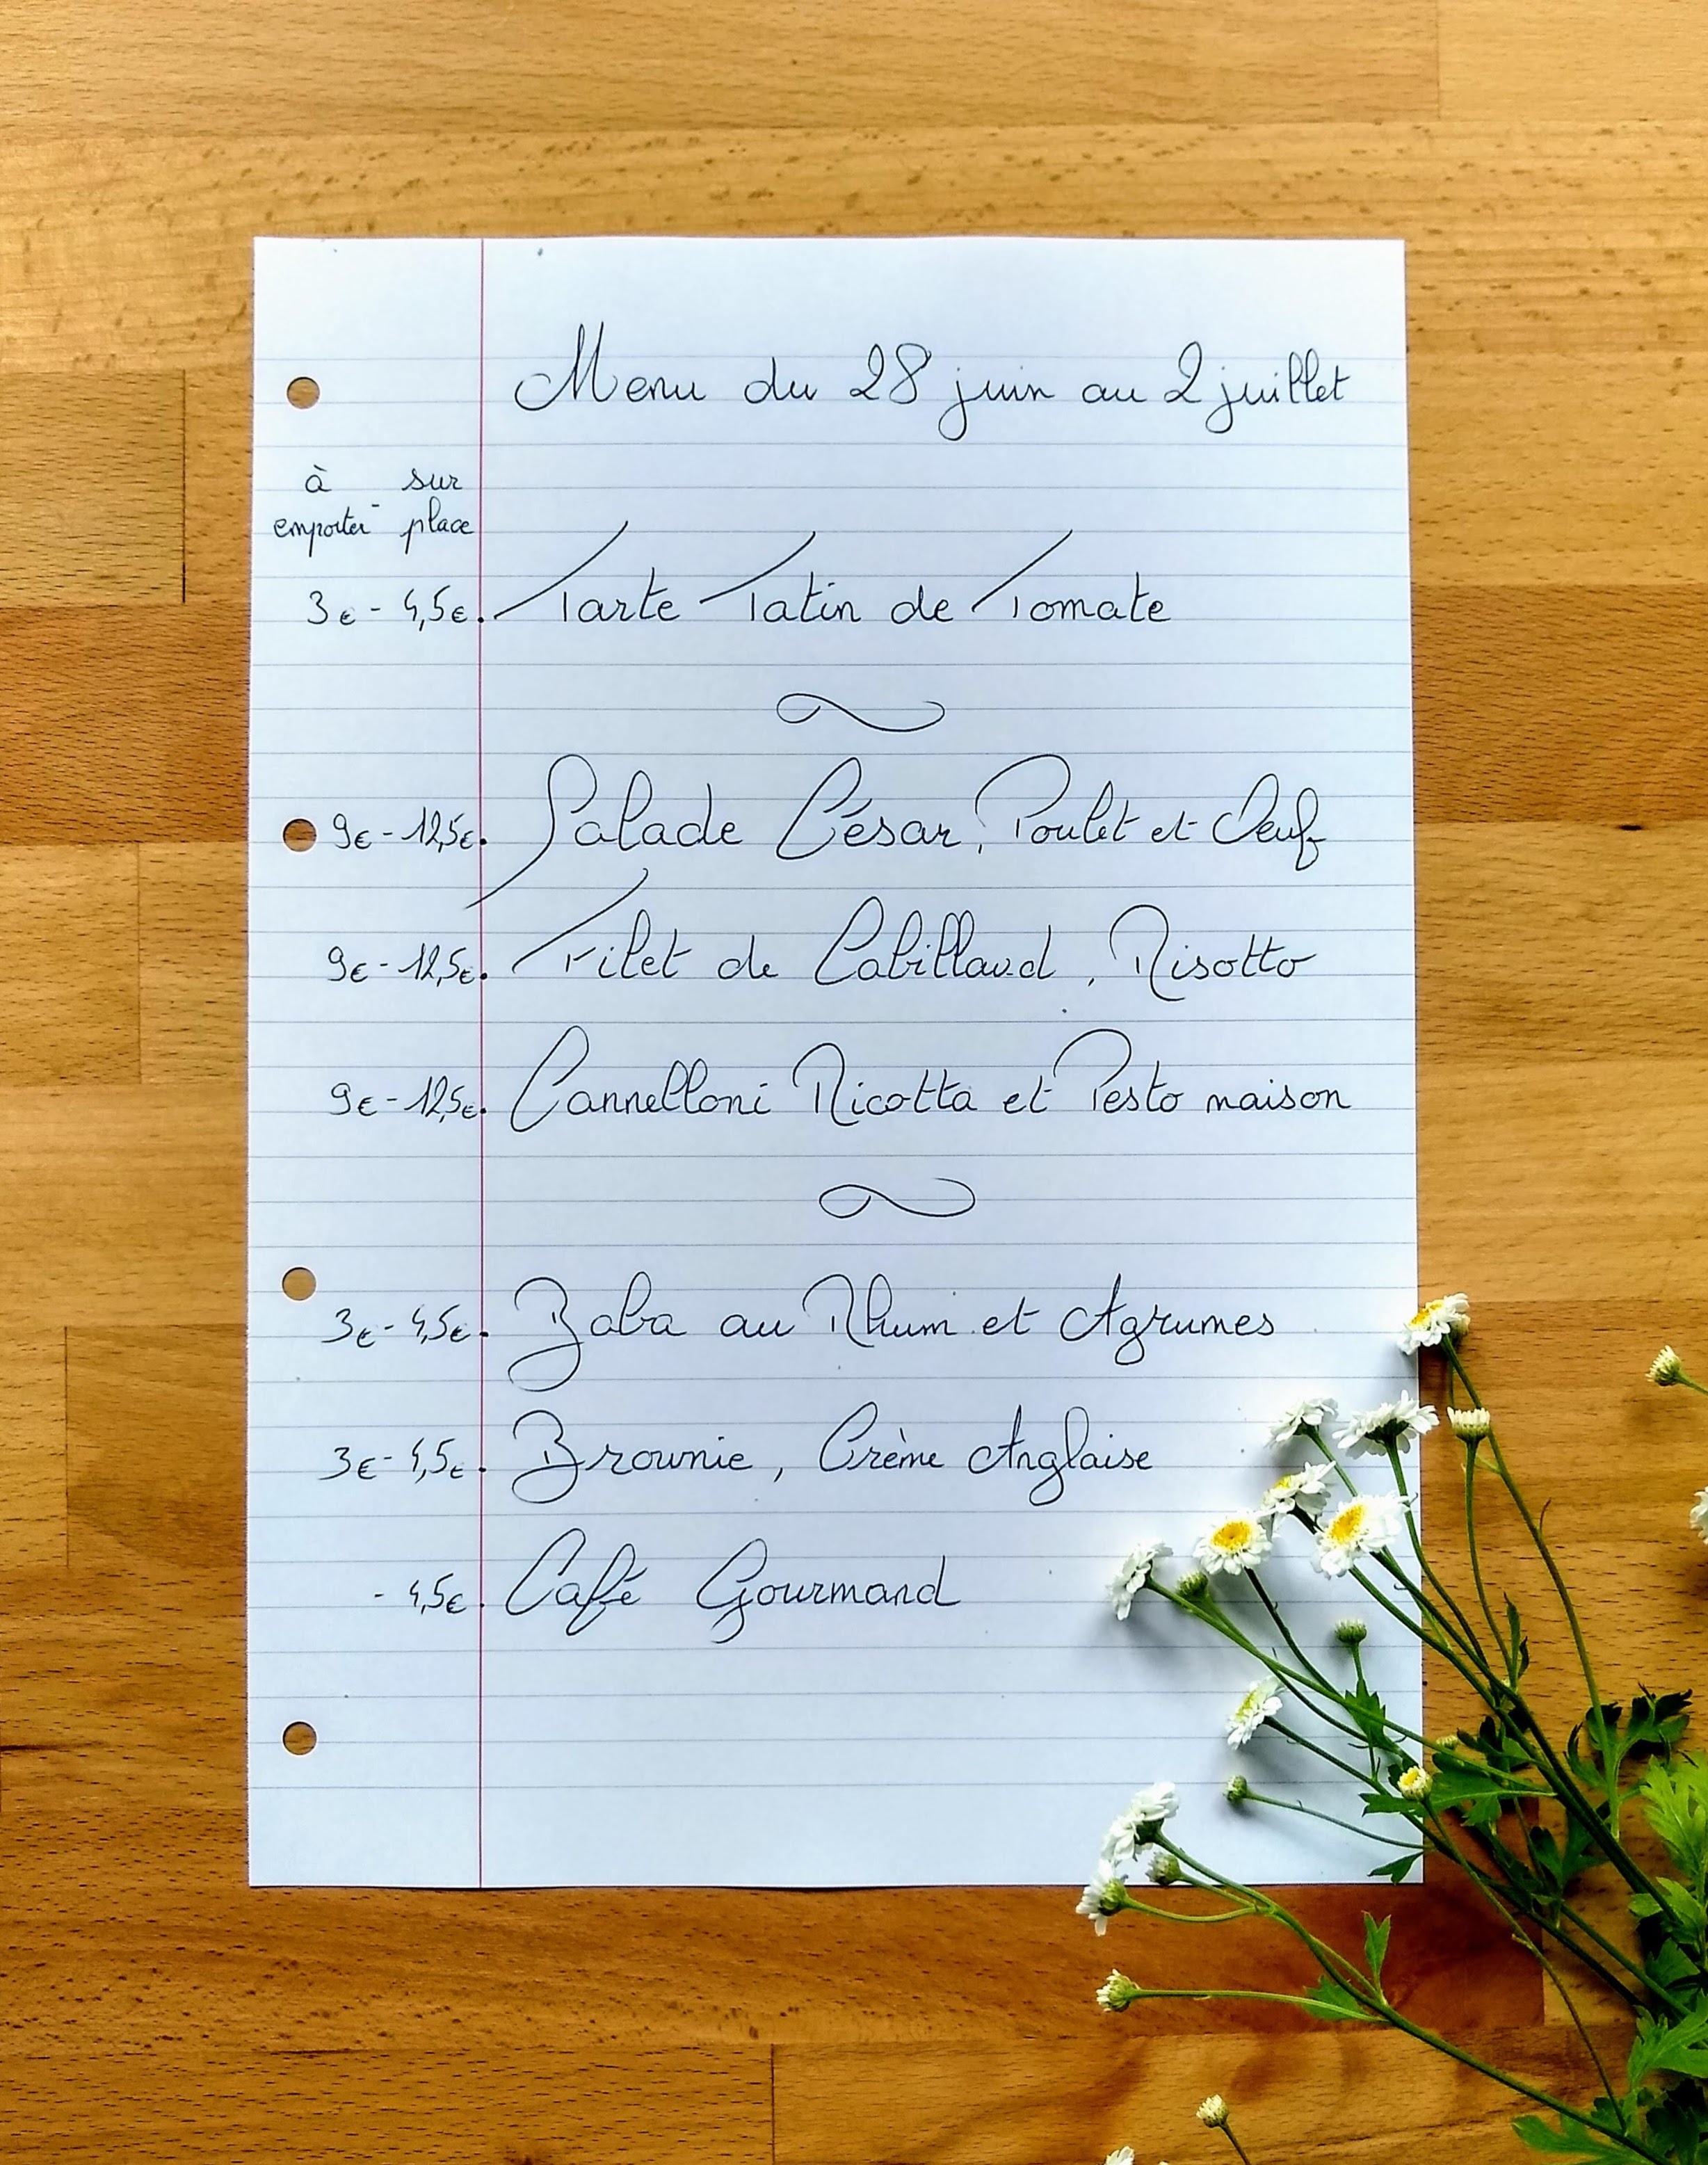 Menu du 28 juin au 2 juillet
à sur
emporter - place
3€ - 4,5€. Tarte Tatin de Tomate
9€ - 12,5€. Salade César, Poulet et Oeuf
9€ - 12,5€. Filet de Cabillaud, Risotto
9€ - 12,5€. Cannelloni Ricotta et Pesto maison
3€ - 4,5€. Baba au Rhum et Agrumes
3€ - 4,5€. Brownie, Crème Anglaise
- 4,5€. Café Gourmand